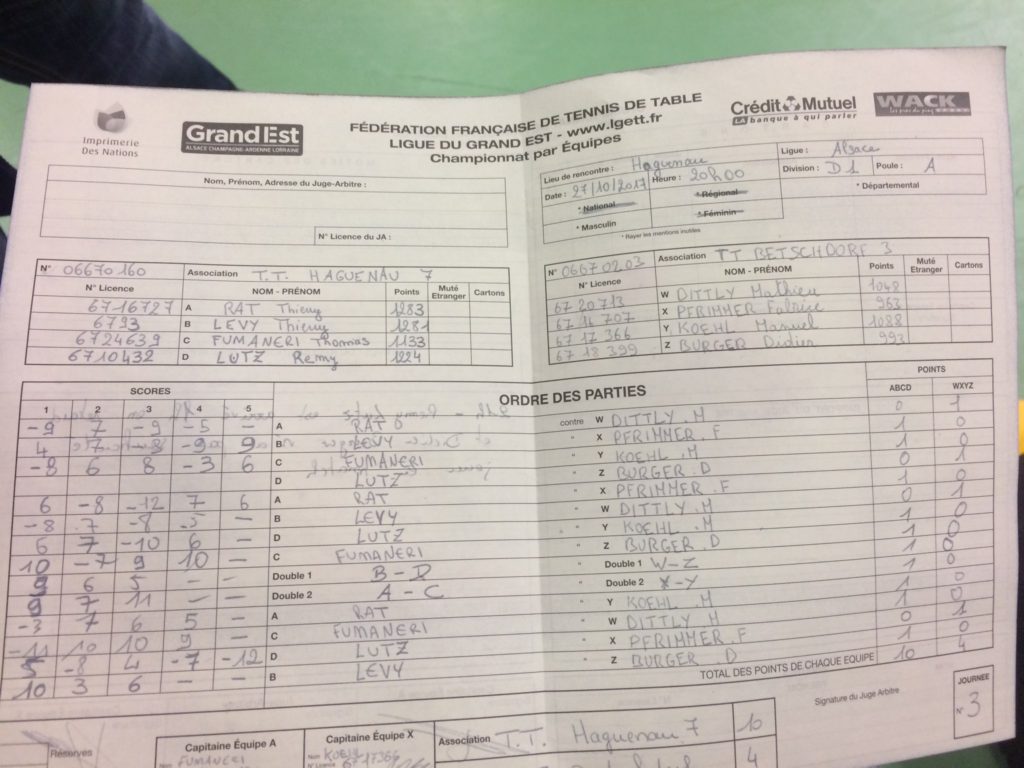 Imprimerie
Des Nations
GrandEst
ALSACE CHAMPAGNE-ARDENNE LORRAINE
FÉDÉRATION FRANÇAISE DE TENNIS DE TABLE
LIGUE DU GRAND EST - www.lgett.fr
Championnat par Équipes
Crédit Mutuel
LA banque à qui parler
WACK
Nom, Prénom, Adresse du Juge-Arbitre :
N° Licence du JA :
Lieu de rencontre : Haguenau
Ligue : Alsace
Date : 27/10/2017 Heure : 20h00
Division : D1 Poule : A
* National * Régional * Départemental
* Masculin * Féminin
* Rayer les mentions inutiles
N° 06670160 Association T.T. HAGUENAU 7
N° Licence NOM - PRÉNOM Points Muté Etranger Cartons
6716727 A RAT Thierry 1283
6793 B LEVY Thierry 1281
6724639 C FUMANERI Thomas 1133
6710432 D LUTZ Remy 1224
N° 06670203 Association TT BETSCHDORF 3
N° Licence NOM - PRÉNOM Points Muté Etranger Cartons
67 20 713 W DITTLY Mathieu 1048
67 16 707 X PFRIMMER Fabrice 963
67 17 366 Y KOEHL Manuel 1088
67 18 399 Z BURGER Didier 993
SCORES ORDRE DES PARTIES POINTS
1 2 3 4 5 ABCD WXYZ
-9 7 -9 -5 - A RAT contre W DITTLY.M 0 1
4 7 -8 -9 9 B LEVY " X PFRIMMER.F 1 0
-8 6 8 -3 6 C FUMANERI " Y KOEHL.M 1 0
D LUTZ " Z BURGER.D 0 1
6 -8 -12 7 6 A RAT " X PFRIMMER.F 1 0
-8 7 -8 -5 - B LEVY " W DITTLY.M 0 1
6 7 -10 6 - D LUTZ " Y KOEHL.M 1 0
10 -7 9 10 - C FUMANERI " Z BURGER.D 1 0
9 6 5 - - Double 1 B-D " Double 1 W-Z 1 0
9 7 11 - - Double 2 A-C " Double 2 X-Y 1 0
-3 7 6 5 - A RAT " Y KOEHL.M 1 0
-11 10 10 9 - C FUMANERI " W DITTLY.M 1 0
5 -8 4 -7 -12 D LUTZ " X PFRIMMER.F 0 1
10 3 6 - - B LEVY " Z BURGER D 1 0
TOTAL DES POINTS DE CHAQUE EQUIPE 10 4
Signature du Juge Arbitre
JOURNEE
N° 3
Réserves
Capitaine Équipe A
Nom FUMANERI
Capitaine Équipe X
Nom KOEHL
17366
Association T.T. Haguenau 7 10
4